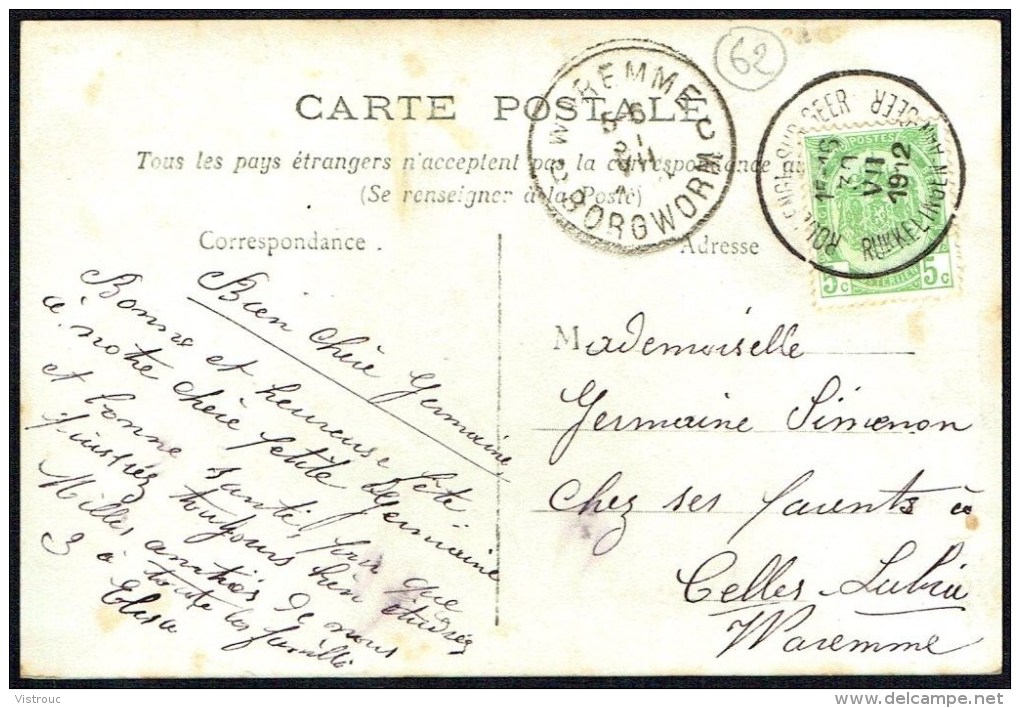 62
CARTE POSTALE
Tous les pays étrangers n'acceptent pas la correspondance au
(Se renseigner à la Poste)
WAREMME
5-6
VII
BORGWORM
GEER
15-16
30
VII
1912
RUKKELINGEN-AAN-GEER
POSTES
5c 5c
Correspondance.
Adresse
Bien chère Germaine
Bonne et heureuse fête
à notre chère petite Germaine
et bonne santé, que
puissiez toujours bien étudiez
Milles amitiés de nous
3 à toute les famille
Elisa
Mademoiselle
Germaine Simenon
chez ses parents à
Celles-Lubin
Waremme
Vistrouc
delcampe.net